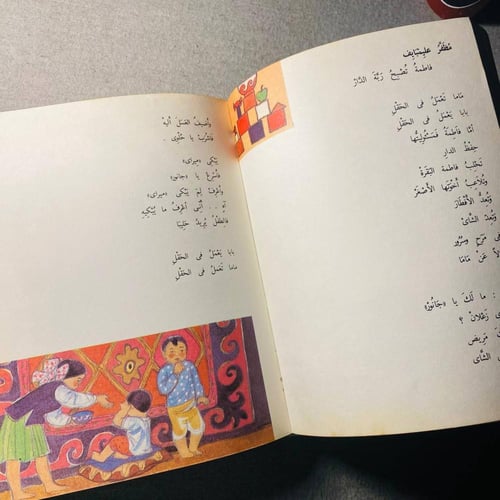 مُظَفَّرْ عليمبَايِف
فَاطِمَةُ تُصْبِحُ رَبَّةَ الدَّارْ
مَامَا تَعْمَلُ فى الحَقْلِ
بَابَا يَعْمَلُ فى الحَقْلِ
أمَّا فَاطمةُ فَمَسْئولِيَّتُها
حِفْظُ الدارِ
تَحْلِبُ فاطمة البَقَرةَ
وَتُلاعِبُ أخُوْتَها الأصْغَرْ
وَتُعِدُّ الأفْطَارَ
وَتُعِدُّ الشَّاىْ
مَرَحٍ وسُرُور
عَنْ مَامَا
: ما لَكَ يا «جَانُورْ»
زَعْلانْ ؟
مَريض
الشَّاى
وأُضِيفُ العَسَلَ ألَيهْ
فَاشْرَبْ يا حُلْوِى .
يَبْكى «ميراى»
فَأَسْرَعَ يا «جانور»
وأَعْرِفْ لِمَ يَبْكى «ميراى»
نَمْ .. أَنَّنى أَعْرِفُ ما يُبْكِيهِ
فَالطِّفْلُ يُريدُ حَلِيبًا
بابا يَعْمَلُ فى الحَقْلِ
ماما تَعْمَلُ فى الحَقْلِ